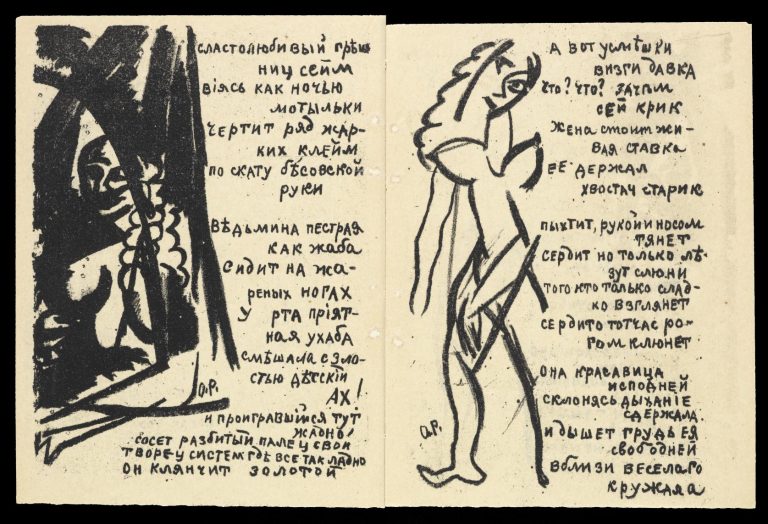 сластолюбивый грѣш
ниц сейм
вiясь как ночью
мотыльки
чертит ряд жар-
ких клейм
по скату бѣсовской
руки
вѣдьмина пестрая
как жаба
сидит на жа-
реных ногах
у рта прiят-
ная ухаба
смѣшала с зло-
стью дѣтскiй
ах!
и проигравшiйся тут
жадно
сосет разбитый палец свой
творец систем гдѣ все так ладно
он клянчит золотой
О.Р.
А вот усмѣшки
визги давка
что? что? зачем
сей крик
жена стоит жи-
вая ставка
ее держал
хвостач старик
пыхтит, рукой и носом
тянет
сердит но только лѣ-
зут слюни
того кто только слад-
ко взглянет
сердито тотчас ро-
гом клюнет
она красавица
исподней
склонясь дыханiе
сдержала
и дышет грудь ея
свободней
вблизи веселаго
кружала
О.Р.